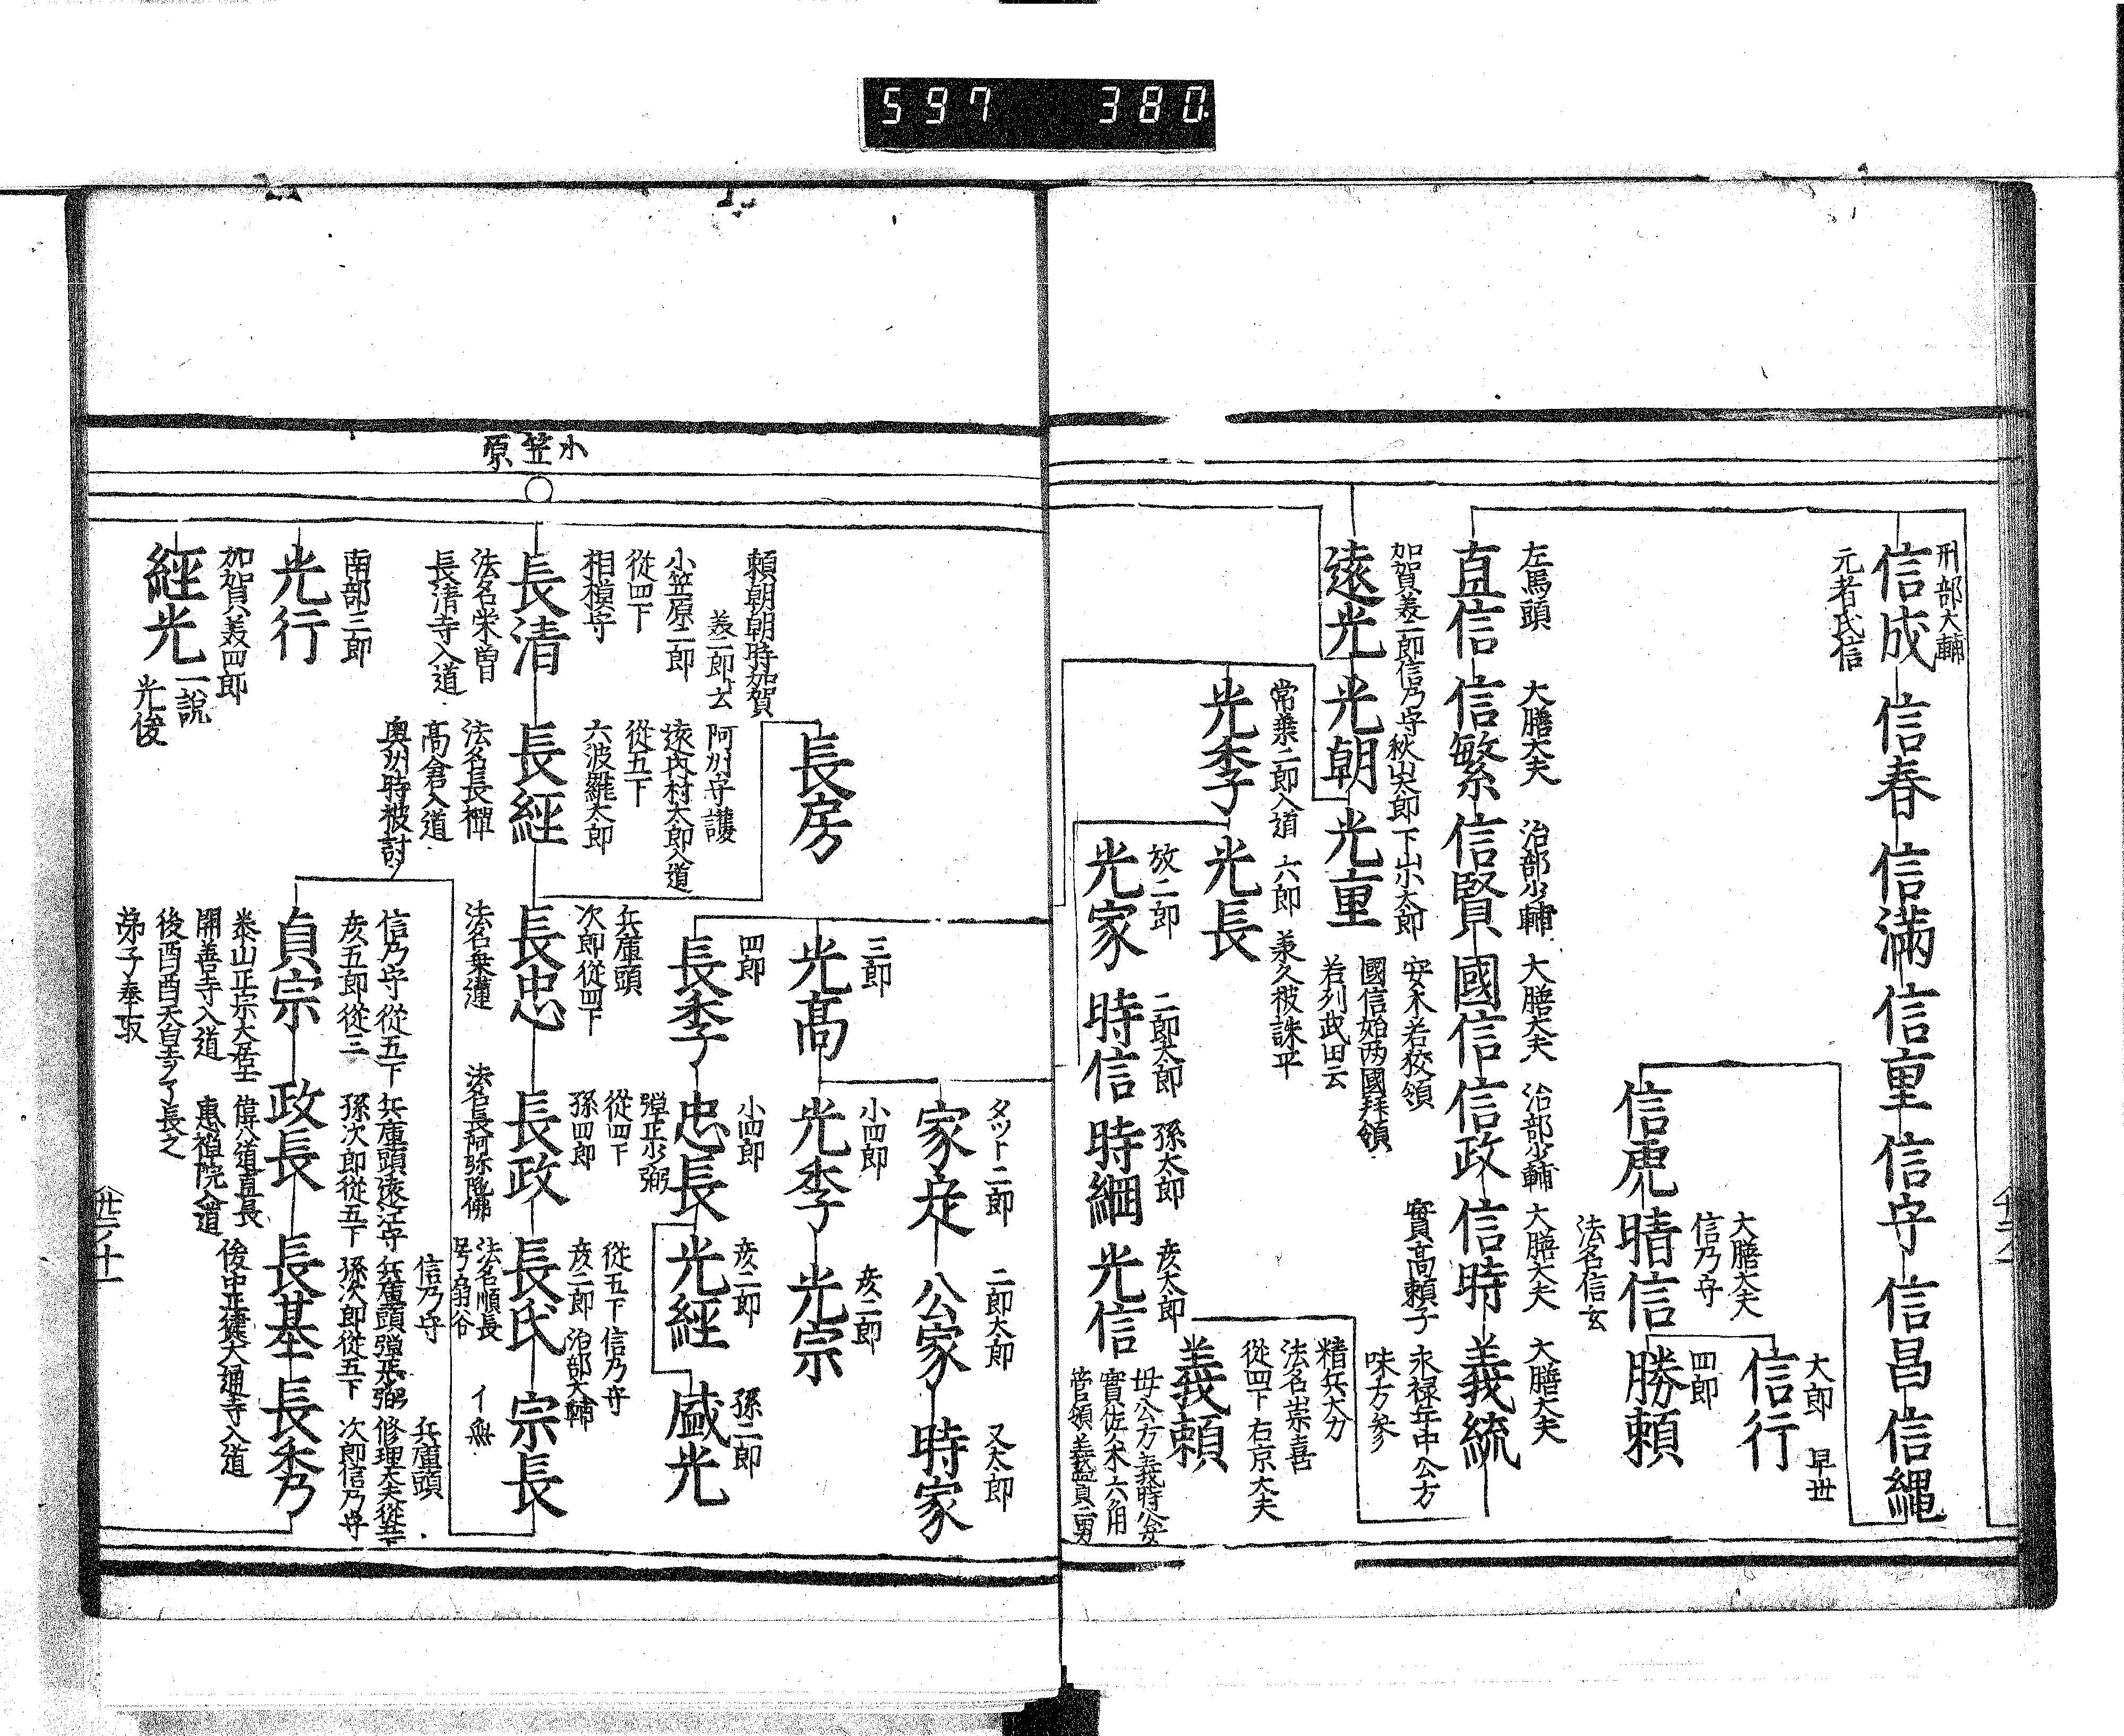 597 380.
刑部大輔
信成 信春 信満 信重 信守 信昌 信縄
元者氏信
大郎 早世
信行
大膳大夫
信乃守
四郎
信虎 晴信 勝頼
法名信玄
左馬頭 大膳大夫 治部少輔 大膳大夫 治部少輔 大膳大夫 大膳大夫
直信 信繁 信賢 國信 信政 信時 義統
安木若狭領
國信始两國拜領
若列武田云
實髙頼子
永禄年中公方
味方参
加賀美二郎信乃守 秋山太郎 下山小太郎
遠光 光朝 光重
精兵大力
法名崇喜
從四下右京大夫
義頼
常葉二郎入道 六郎
光季 光長
兼久被誅平
放二郎 二郎太郎 孫太郎 彦太郎
光家 時信 時綱 光信
母公方義時公女
實佐久木六角
管領義賢二男
小笠原
タツト二郎 二郎大郎 又太郎
家定 公家 時家
三郎 小四郎 彦二郎
光髙 光季 光宗
長房
四郎 小四郎 彦二郎 孫二郎
長季 忠長 光經 盛光
頼朝朝時加賀
美二郎云
小笠原二郎
從四下
相模守
阿州守護
遠内村太郎入道
從五下
六波羅太郎
兵庫頭
次郎從四下
弾正少弼
從四下
孫四郎
從五下信乃守
彦二郎 治部大輔
長清 長經 長忠 長政 長氏 宗長
法名栄曽
長清寺入道
法名長禅
髙倉入道
奥州時被討
法名乗蓮
法名長阿弥陀佛
法名順長
号扇谷
イ無
南部三郎
光行
信乃守從五下
彦五郎從三
兵庫頭遠江守
孫次郎從五下
信乃守
兵庫頭弾正弼
孫次郎從五下
兵庫頭
修理大夫從五下
次郎信乃守
貞宗 政長 長基 長秀
泰山正宗大居士
開善寺入道
後醍醐天皇
弟子奉公
惠禅院入道
大通寺入道
加賀美四郎
經光
一説
光俊